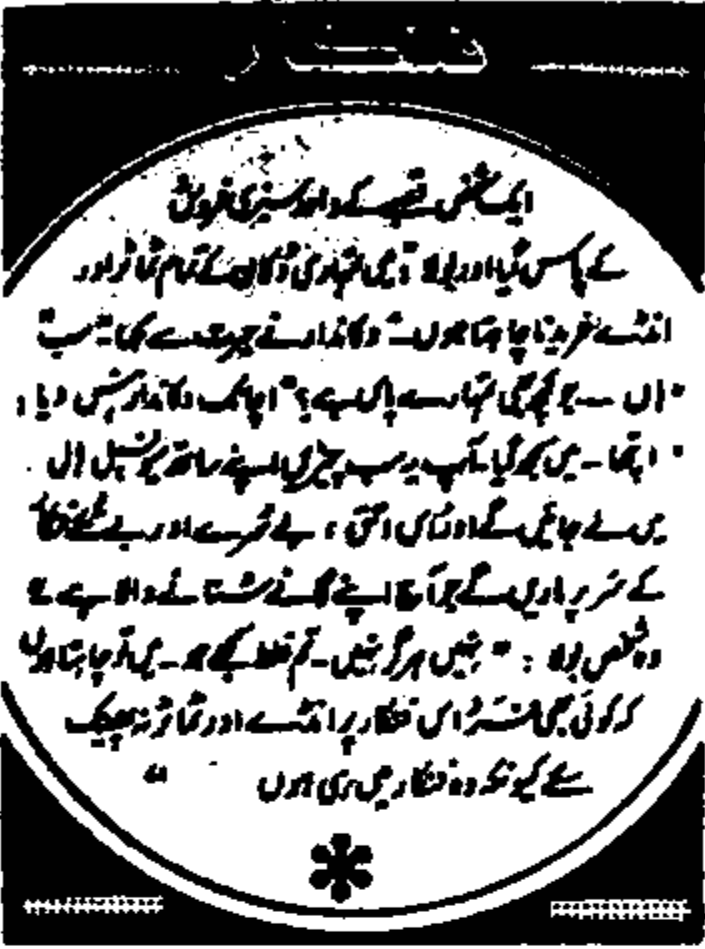 فنکار
ایک شخص قصبے کے واحد سبزی فروش
کے پاس گیا اور بولا "میں تمہاری دُکان کے تمام ٹماٹر اور
انڈے خریدنا چاہتا ہوں۔" دکاندار نے حیرت سے کہا۔ "سب"
"ہاں --- جو کچھ بھی تمہارے پاس ہے؟" اچانک دکاندار ہنس دیا:
"اچھا۔ میں سمجھ گیا۔ آپ یہ سب چیزیں اپنے ساتھ میونسپل ہال
میں لے جائیں گے اور اس احمق، بے سُرے اور بے فنکار
کے سر پر ماریں گے جو آج اپنے گانے سُنانے والا ہے"
وہ شخص بولا: "نہیں ہرگز نہیں۔ تم غلط سمجھے ہو۔ میں تو چاہتا ہوں
کہ کوئی بھی اس فنکار پر انڈے اور ٹماٹر نہ پھینک
سکے کیونکہ وہ فنکار میں ہی ہوں"